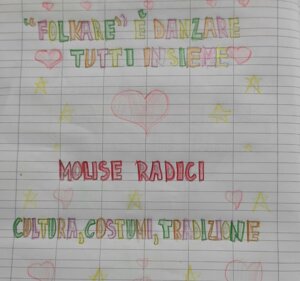 "FOLKARE" È DANZARE
TUTTI INSIEME
MOLISE RADICI
CULTURA, COSTUMI, TRADIZIONE